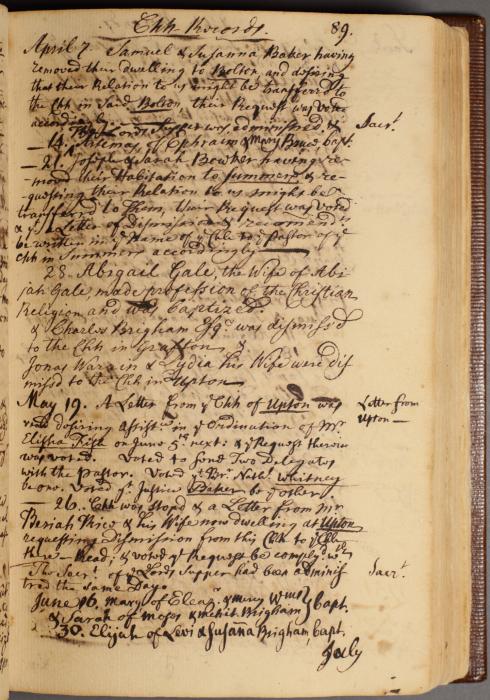 Chh Records. 89.
April 7. Samuel & Susanna Baker having
removed their dwelling to Bolton, and desiring
that their Relation to us might be transferred to
the Chh in said Bolton, their Request was voted
accordingly.
The Lords Supper was administred, & Sacrt.
14. Artemas of Ephraim & Mary Bruce, bapt.
21. Joseph & Sarah Bowker having re-
moved their Habitation to Summers & re-
questing their Relation to us might be
transferred to Them, their Request was voted
& yt a Letter of Dismission & recommendn
be written in ye Name of ye Chh to ye Pastor of ye
Chh in Summers accordingly
28. Abigail Gale, the Wife of Abi-
jah Gale, made profession of the Christian
Religion and was baptized.
& Charles Brigham Esqr. was dismiss'd
to the Chh in Grafton, &
Jonas Warrin & Lydia his Wife were dis-
missd to the Chh in Upton
May 19. A Letter from ye Chh of Upton was Letter from
read desiring assistce in ye Ordination of Mr. Upton
Elisha Fish on June 5th next: & ye Request therein
was voted. Voted to send Two Delegates
with the Pastor. Voted yt Br. Nathl. Whitney
be one. Voted yt Justice Baker be ye other.
26. Chh was stopd & a Letter from Mr.
Beriah Rice & his Wife now dwelling at Upton
requesting Dismission from this Chh to ye Chh
there Read; & voted ye Request be comply'd wth.
The Sacrt. of ye Lords Supper had been adminis- Sacrt.
tred the same Day.
June 16. Mary of Eleazr & Mary bapt.
& Sarah of Moses & Mehit. Brigham
30. Elijah of Levi & Susanna Brigham, bapt.
July